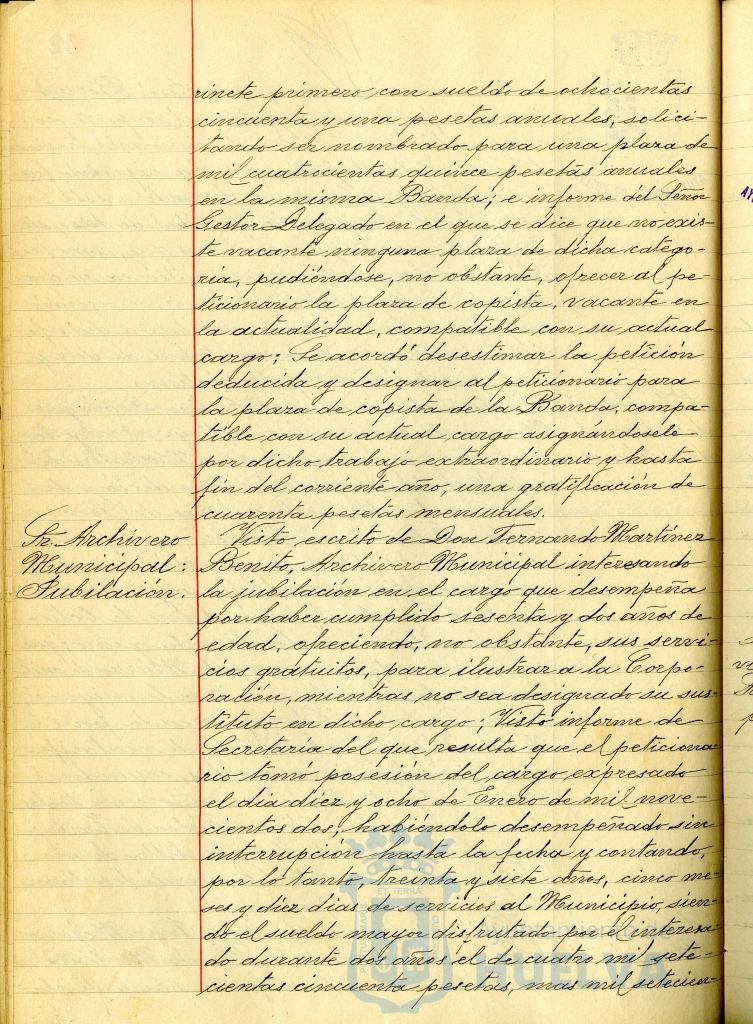 rinete primero, con sueldo de ochocientas
cincuenta y una pesetas anuales, solici-
tando ser nombrado para una plaza de
mil cuatrocientas quince pesetas anuales
en la misma Banda; e informe del Señor
Gestor Delegado en el que se dice que no exis-
te vacante ninguna plaza de dicha catego-
ria, pudiéndose, no obstante, ofrecer al pe-
ticionario la plaza de copista, vacante en
la actualidad, compatible con su actual
cargo; Se acordó desestimar la petición
deducida y designar al peticionario para
la plaza de copista de la Banda, compa-
tible con su actual cargo asignándosele
por dicho trabajo extraordinario y hasta
fin del corriente año, una gratificación de
cuarenta pesetas mensuales.
Sr. Archivero
Municipal:
Jubilación.
Visto escrito de Don Fernando Martínez
Benito, Archivero Municipal interesando
la jubilación en el cargo que desempeña
por haber cumplido sesenta y dos años de
edad, ofreciendo, no obstante, sus servi-
cios gratuitos, para ilustrar a la Corpo-
ración, mientras no sea designado su sus-
tituto en dicho cargo; Visto informe de
Secretaría del que resulta que el peticiona-
rio tomó posesión del cargo expresado
el dia diez y ocho de Enero de mil nove-
cientos dos; habiéndolo desempeñado sin
interrupción hasta la fecha y contando,
por lo tanto, treinta y siete años, cinco me-
ses y diez dias de servicios al Municipio, sien-
do el sueldo mayor disfrutado por el interesa-
do durante dos años el de cuatro mil sete-
cientas cincuenta pesetas, mas mil setecien-
Ayuntamiento de
HUELVA